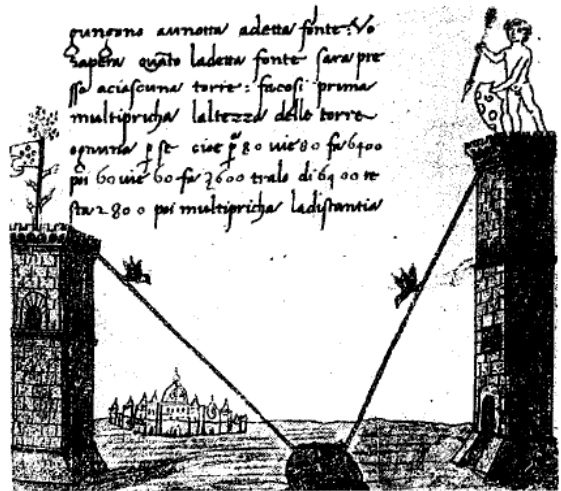 gungono aunotta adetta fonte: Vo
sapera quāto ladetta fonte sara pre
sso aciascuna torre: fa cosi prima
multipricha laltezza delle torre
ognuna p se cioe p 80 vie 80 fa 6400
poi 60 vie 60 fa 3600 tralo di 6400 re
sta 2800 poi multipricha ladistantia